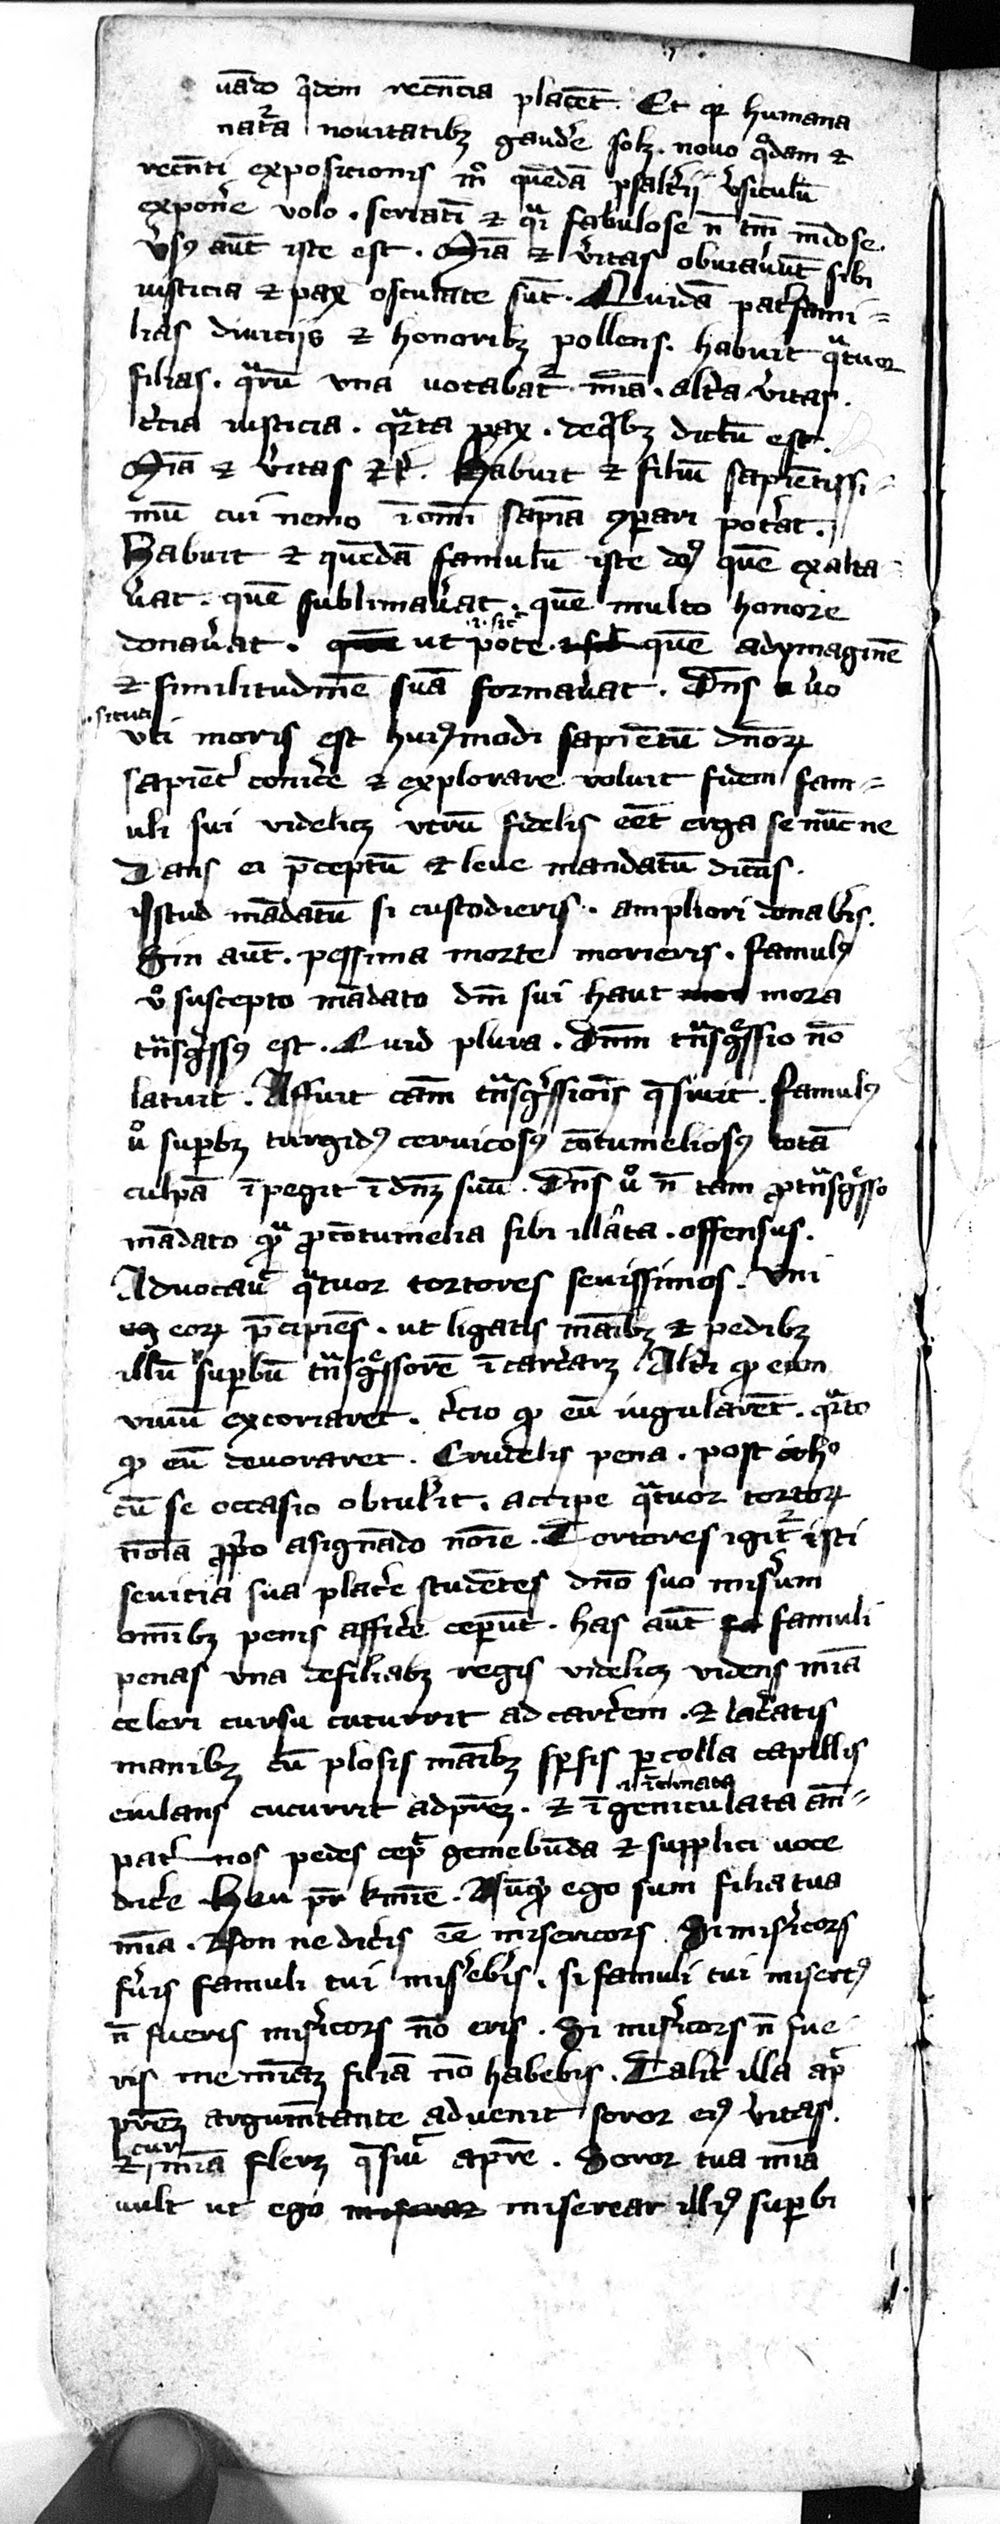 uado q̇dem recn̄cia placēt. Et qꝛ humana
nat̉a nouitatibꝫ gaud̉e solꝫ. nouo q̊dam ⁊
recēti expositionis m̊ quēdā psalt̉ij v̉siculū
expon̉e volo. seriatī ⁊ qͣi fabulose n̄ tm̄ mēdose.
v̉sꝰ aūt iste est. Mīa ⁊ v̉itas obuiau̇ūt sibi
iusticia ⁊ pax osculate sūt. Quidā pat̉fami=
lias diuicijs ⁊ honoribꝫ pollens. habuit qͣtuor
filias. qͣrū vna uocabat̉ mīa. alt̉a v̉itas.
t̉cia iusticia. qͣrta pax. de qͥbꝫ dictū est.
Mīa ⁊ v̉itas ⁊c̉. Habuit ⁊ filiū sapiētissi=
mū cui nemo ī om̄i sapīa ꝯpari pot̉at.
Habuit ⁊ quēdā famulū iste dn̄s quē exalta
v̉at. quē sublimav̉at. quē multo honore
donav̉at. ut pote .i. sic̄ quē ad ymaginē
⁊ similitudinē suā formav̉at. Dn̄s v̊o
.situa
uti moris est huiꝰmodi sapiētū dn̄oꝝ
sapiēt̉ conic̉e ⁊ explorare voluit fidem fam=
uli sui videlicꝫ vtrū fidelis eēt erga se nūc ne
Dans ei p̄ceptū ⁊ leue mandatū dicēs.
Istud mādatū si custodieris. ampliori donab̉is.
Sin aūt. pessima morte morieris. Famulꝰ
v̊ suscepto mādato dn̄i sui haut mora
tͣnsg̉ssꝰ est. Quid plura. Dn̄m tͣnsg̉ssio nō
latuit. Affuit cām tͣnsg̉ssiōis q̄siuit. Famulꝰ
v̊ supbꝫ turgidꝰ ceruicosꝰ cōtumeliosꝰ totā
culpā īpegit ī dn̄ꝫ suū. Dn̄s v̊ n̄ tam ꝓ tͣnsg̉sso
mādato qͣ ꝓ cōtumelia sibi illata. offensus.
Aduocau̇ qͣtuor tortores seuissimos. Vni
eoꝝ p̄cipiēs. ut ligatis māibꝫ ⁊ pedibꝫ
illū supbū tͣnsg̉ssorē īcarc̉arꝫ Alt̉i qꝫ eum
viuū excoriaret. t̉cio qꝫ eū iugularēt. qͣrto
qꝫ eū deuoraret. Crudelis pena. post
cū se occasio obtul̉it. accipe qͣtuor tortoꝝ
noīa ꝓpͥo asignādo noīe. Tortores igit̉ isti
seuicia sua plac̉e studētes dn̄o suo mis̉um
omībꝫ penis affic̉e cep̄ūt. has aūt famuli
penas vna de filiabꝫ regis videlicꝫ videns mīa
celeri cursu cucurrit ad carc̉em. ⁊ lac̉atis
manibꝫ cū plosis māibꝫ spsis per colla capillis
eiulans cucurrit ad pr̄eꝫ. ⁊ īgeniculata .i. īclinata an̄=
pat̉nos pedes cep̉ gemebūda ⁊ supplici uoce
dic̉e Heu pr̄ kmīe. Nūqͥd ego sum filia tua
mīa. Non ne dic̉is eē misericors. Si mis̉icors
fu̇is famuli tui mis̉eb̉is. si famuli tui misertꝰ
n̄ fueris mis̉icors nō eris. Si mis̉icors n̄ fue
ris me mīaꝫ filiā nō habebis. Talit̉ illa apͩ
pr̄eꝫ argumētante aduenit soror eiꝰ v̉itas.
⁊ cur mīa flerꝫ q̄siu̇ a pr̄e. Soror tua mīa
uult ut ego miserear illiꝰ supbi